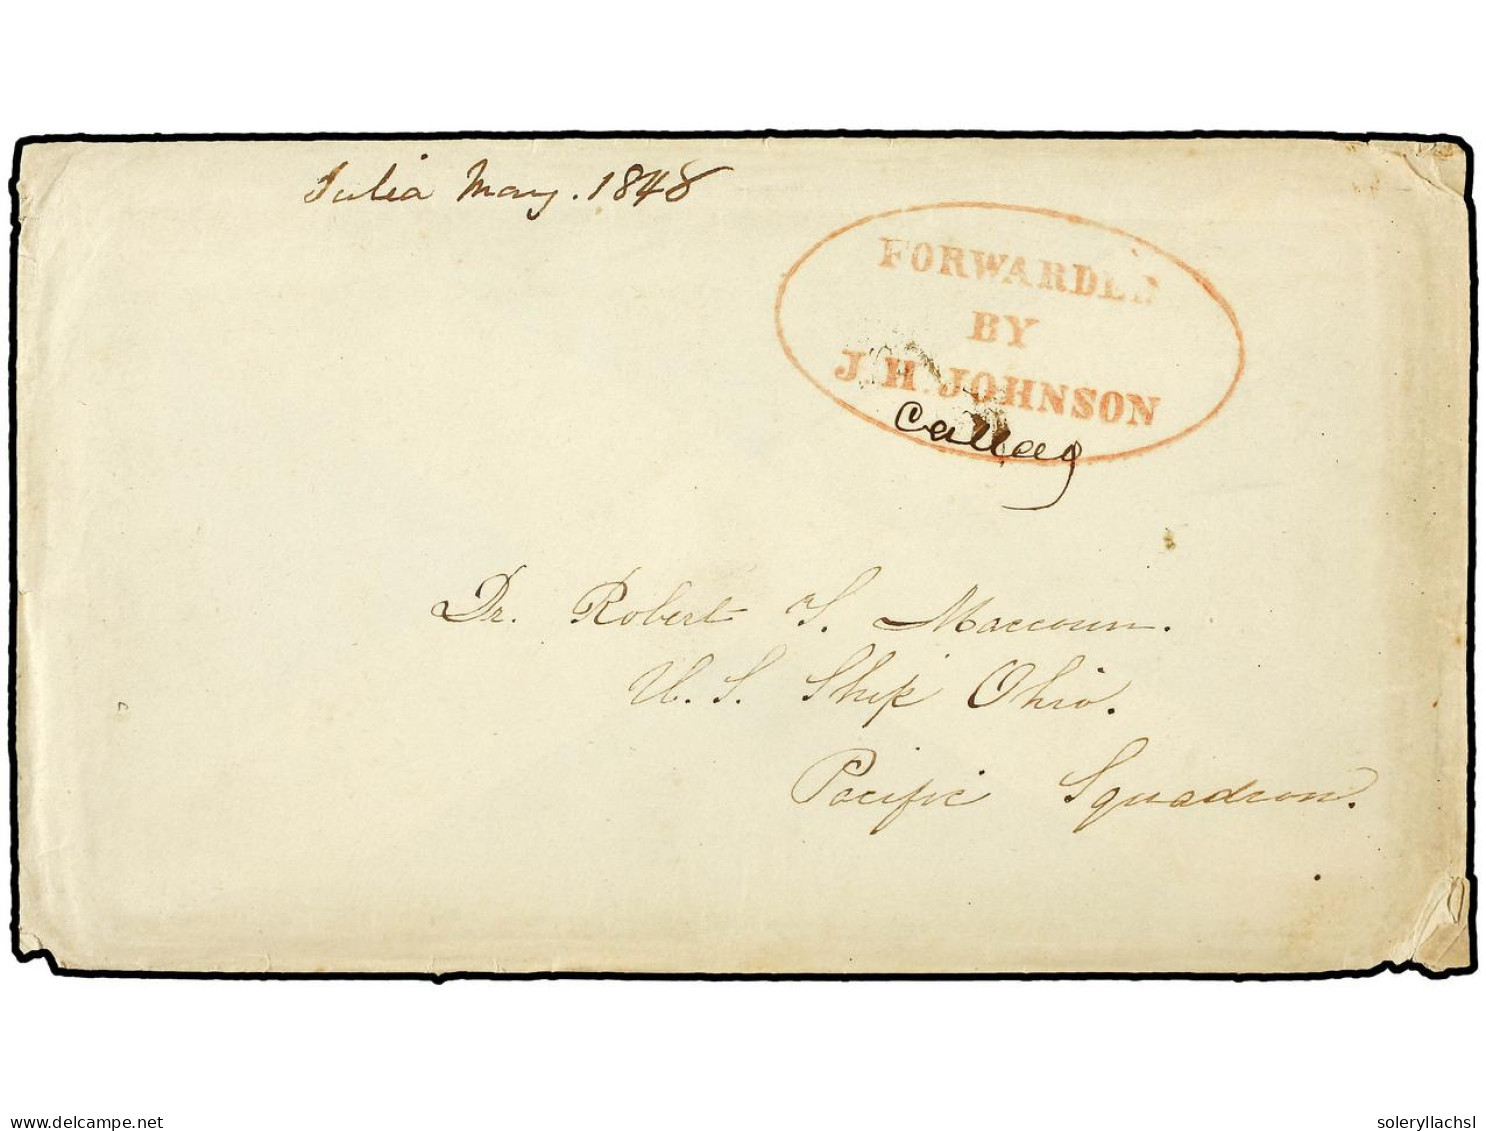 Julia May. 1848
FORWARDED
BY
J. H. JOHNSON
Callao
Dr. Robert T. Maccoun.
U. S. Ship Ohio.
Pacific Squadron.
delcampe.net
soleryllachsl